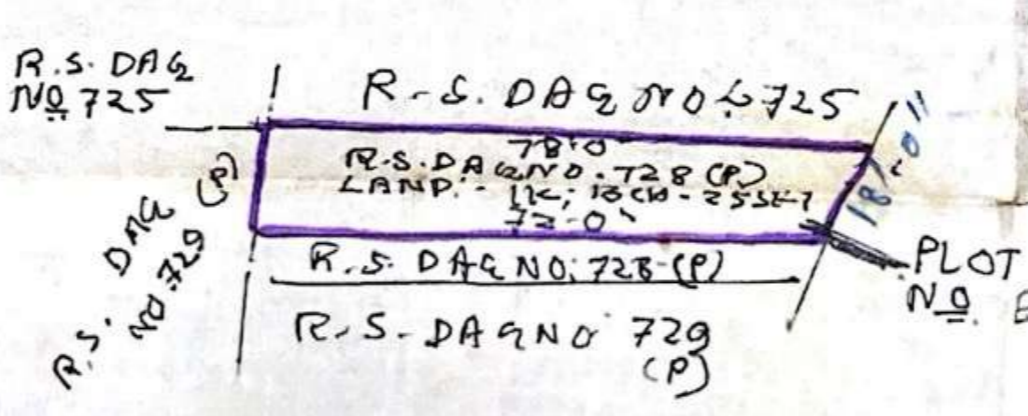 R.S. DAG
NO 725
R.S. DAG NO: 725
78'-0"
R.S. DAG NO. 728 (P)
LAND:-
72'-0"
18'-0"
R.S. DAG NO: 728 (P)
R.S. DAG NO 729
(P)
R.S. DAG NO 729
(P)
PLOT
NO. E